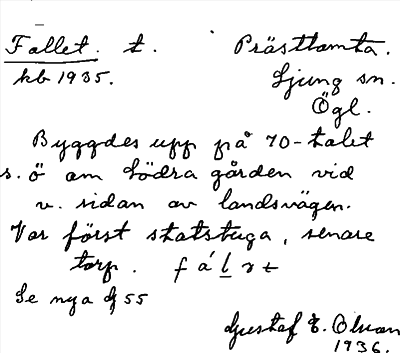 Fallet. t. Prästtomta.
kb 1935. Ljung sn.
Ögl.
Byggdes upp på 70-talet
s. ö om Södra gården vid
v. sidan av landsvägen.
Var först statstuga, senare
torp. f á l ɤ t
Se nya ɠ 55
Gustaf E. Olson
1936.